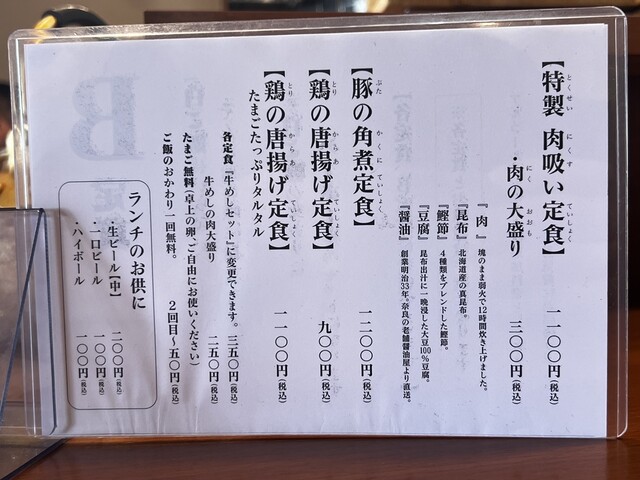 【特製 肉吸い定食】 一一〇〇円（税込）
・肉の大盛り 三〇〇円（税込）
『肉』 塊のまま弱火で12時間炊き上げました。
『昆布』 北海道産の真昆布。
『鰹節』 4種類をブレンドした鰹節。
『豆腐』 昆布出汁に一晩浸した大豆100%豆腐。
『醤油』 創業明治33年、奈良の老舗醤油屋より直送。
【豚の角煮定食】 一二〇〇円（税込）
【鶏の唐揚げ定食】 九〇〇円（税込）
【鶏の唐揚げ定食】 一一〇〇円（税込）
たまごたっぷりタルタル
各定食『牛めしセット』に変更できます。 三五〇円（税込）
牛めしの肉大盛り 二五〇円（税込）
たまご無料（卓上の卵、ご自由にお使いください）
ご飯のおかわり一回無料。 2回目～五〇円（税込）
ランチのお供に
・生ビール【中】 二〇〇円（税込）
・一口ビール 一〇〇円（税込）
・ハイボール 一〇〇円（税込）